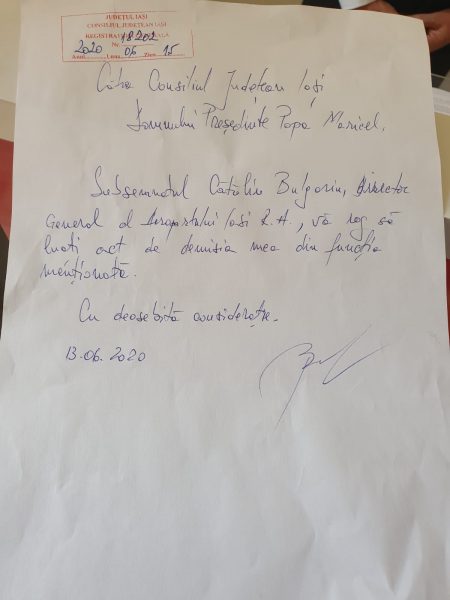 JUDEȚUL IAȘI
CONSILIUL JUDEȚEAN IAȘI
REGISTRATURA GENERALĂ
Nr. 18202
Anul 2020 Luna 06 Ziua 15
Către Consiliul Județean Iași
Domnului Președinte Popa Maricel,
Subsemnatul Cătălin Bulgariu, Director
General al Aeroportului Iași R.A., vă rog să
luați act de demisia mea din funcția
menționată.
Cu deosebită considerație.
13.06.2020